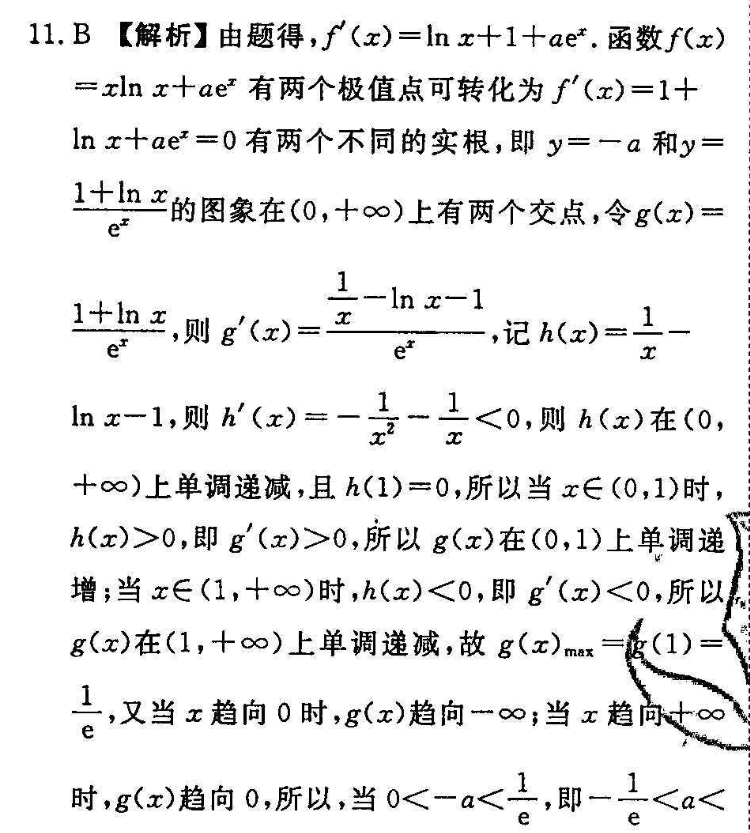 11. B 【解析】由题得,f′(x)=ln x+1+aeˣ. 函数f(x)
=xln x+aeˣ 有两个极值点可转化为 f′(x)=1+
ln x+aeˣ=0 有两个不同的实根,即 y=-a 和y=
\frac{1+ln x}{eˣ}的图象在(0,+∞)上有两个交点,令g(x)=
\frac{1+ln x}{eˣ},则 g′(x)=\frac{\frac{1}{x}-ln x-1}{eˣ},记 h(x)=\frac{1}{x}-
ln x-1,则 h′(x)=-\frac{1}{x²}-\frac{1}{x}<0,则 h(x)在(0,
+∞)上单调递减,且 h(1)=0,所以当 x∈(0,1)时,
h(x)>0,即 g′(x)>0,所以 g(x)在(0,1)上单调递
增;当 x∈(1,+∞)时,h(x)<0,即 g′(x)<0,所以
g(x)在(1,+∞)上单调递减,故 g(x)max=g(1)=
\frac{1}{e},又当 x 趋向 0 时,g(x)趋向-∞;当 x 趋向+∞
时,g(x)趋向 0,所以,当 0<-a<\frac{1}{e},即-\frac{1}{e}<a<